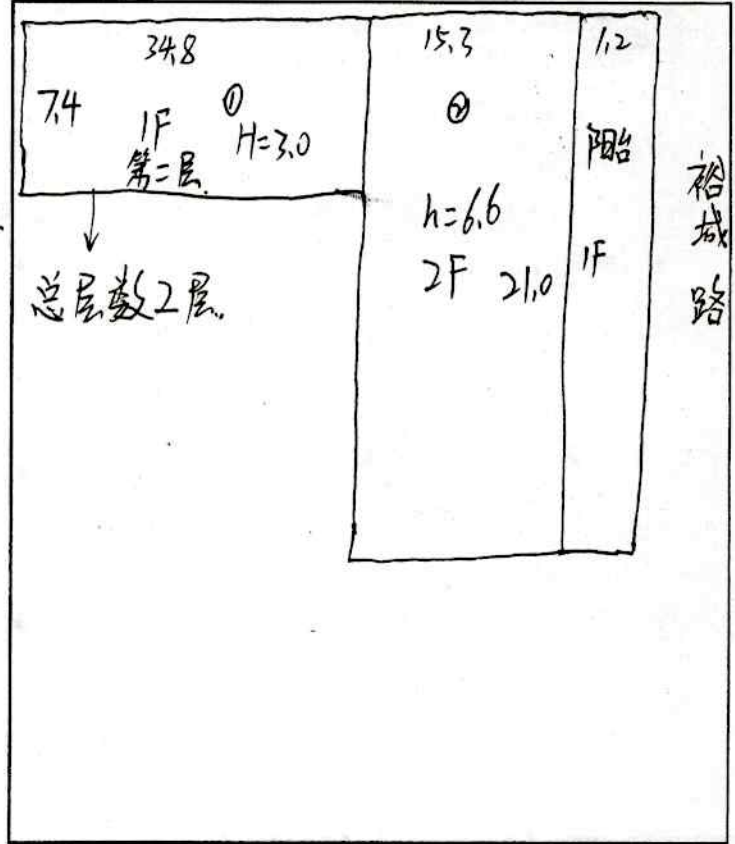 34.8
7.4
①
1F
H=3.0
第二层
总层数2层.
15.3
②
h=6.6
2F 21.0
1.2
阳台
1F
裕城路